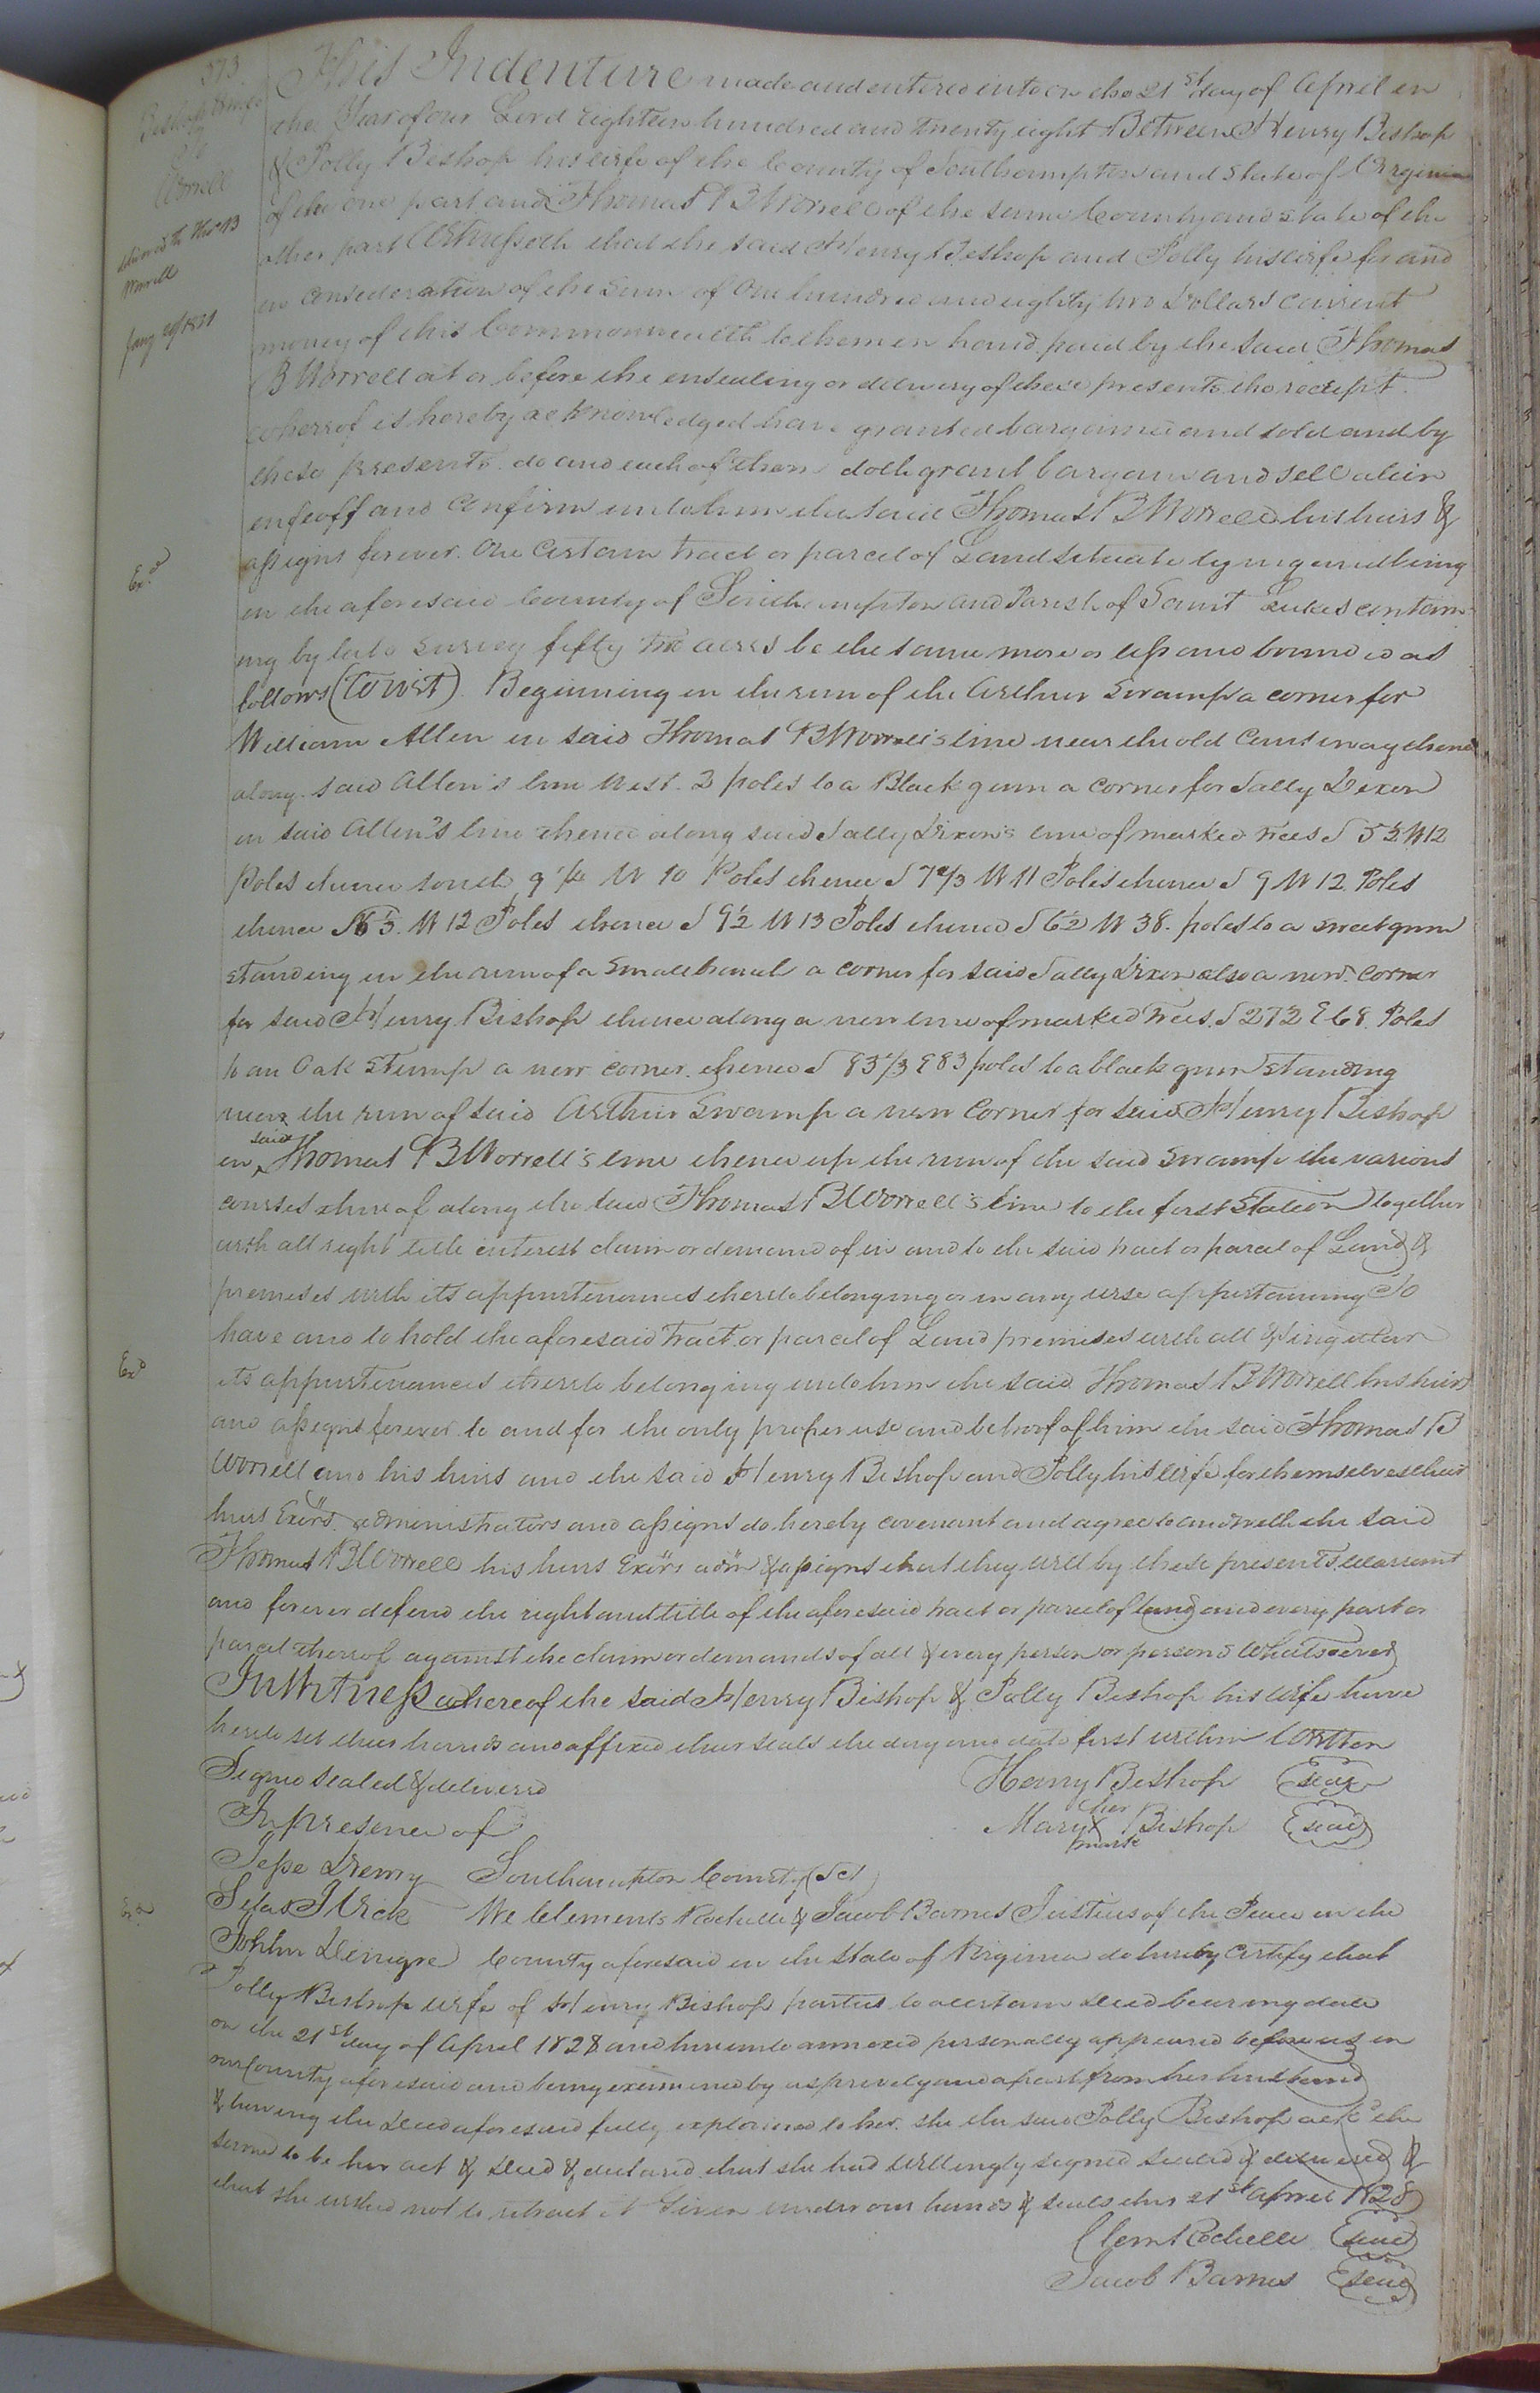 373
Bishop & wife
to
Worrell
delivered to Thos B
Worrell
Jany 20/1831
This Indenture made and entered into on the 21st day of April in
the Year of our Lord Eighteen hundred and twenty eight Between Henry Bishop
& Polly Bishop his wife of the County of Southampton and State of Virginia
of the one part and Thomas B Worrell of the same County and state of the
other part Witnesseth that the said Henry Bishop and Polly his wife for and
in consideration of the sum of One hundred and eighty two Dollars current
money of this Commonwealth to them in hand paid by the said Thomas
B Worrell at or before the ensealing or delivery of these presents the receipt
whereof is hereby acknowledged have granted bargained and sold and by
these presents do and each of them doth grant bargain and sell alien
Exd
enfeoff and confirm unto him the said Thomas B Worrell his heirs &
assigns forever. One Certain tract or parcel of Land situate lying and being
in the aforesaid County of Southampton and Parish of Saint Lukes contain-
ing by late survey fifty two acres be the same more or less and bounded as
follows (To wit). Beginning in the run of the Arthur Swamp a corner for
William Allen in said Thomas B Worrell's line near the old Causeway thence
along said Allen's line West. 3 poles to a Black gum a corner for Sally Dixon
in said Allen's line thence along said Sally Dixon's line of marked trees S 5½ W 12
Poles thence south 9 W 10 Poles thence S 7⅔ W 11 Poles thence S 9 W 12 Poles
thence S 6⅓ W 12 Poles thence S 9½ W 13 Poles thence S 6½ W 38 poles to a sweet gum
standing in the run of a small branch a corner for said Sally Dixon also a new corner
for said Henry Bishop thence along a new line of marked trees S 27½ E 68 Poles
to an Oak Stump a new corner. thence S 83⅓ E 83 poles to a black gum standing
near the run of said Arthur Swamp a new corner for said Henry Bishop
in said Thomas B Worrell's line thence up the run of the said swamp the various
courses thereof along the said Thomas B Worrell's line to the first station together
with all right title interest claim or demand of in and to the said tract or parcel of Land &
premises with its appurtenances thereto belonging or in any wise appertaining To
have and to hold the aforesaid tract or parcel of Land premises with all & singular
Exd
its appurtenances thereto belonging unto him the said Thomas B Worrell his heirs
and assigns forever to and for the only proper use and behoof of him the said Thomas B
Worrell and his heirs and the said Henry Bishop and Polly his wife for themselves their
heirs Exors. administrators and assigns do hereby covenant and agree to and with the said
Thomas B Worrell his heirs Exors adm & assigns that they will by these presents warrant
and forever defend the right and title of the aforesaid tract or parcel of land and every part or
parcel thereof against the claim or demands of all & every person or persons whatsoever
In Witness whereof the said Henry Bishop & Polly Bishop his wife have
hereto set their hands and affixed their seals the day and date first within Written
Signed sealed & delivered
In presence of
Henry Bishop seal
Mary her X mark Bishop seal
Jesse Drewry
Silas J Vick
John
Southampton County (Sct
We Clements Rochelle & Jacob Barnes Justices of the Peace in the
Exd
County aforesaid in the State of Virginia do hereby Certify that
Polly Bishop wife of Henry Bishop parties to a certain Deed bearing date
on the 21st day of April 1828 and hereunto annexed personally appeared before us in
our County aforesaid and being examined by us privily and apart from her husband
& having the Deed aforesaid fully explained to her. she the said Polly Bishop ackd the
same to be her act & Deed & declared that she had willingly signed sealed & delivered &
that she wished not to retract it Given under our hands & seals this 21st April 1828
Clem Rochelle seal
Jacob Barnes seal